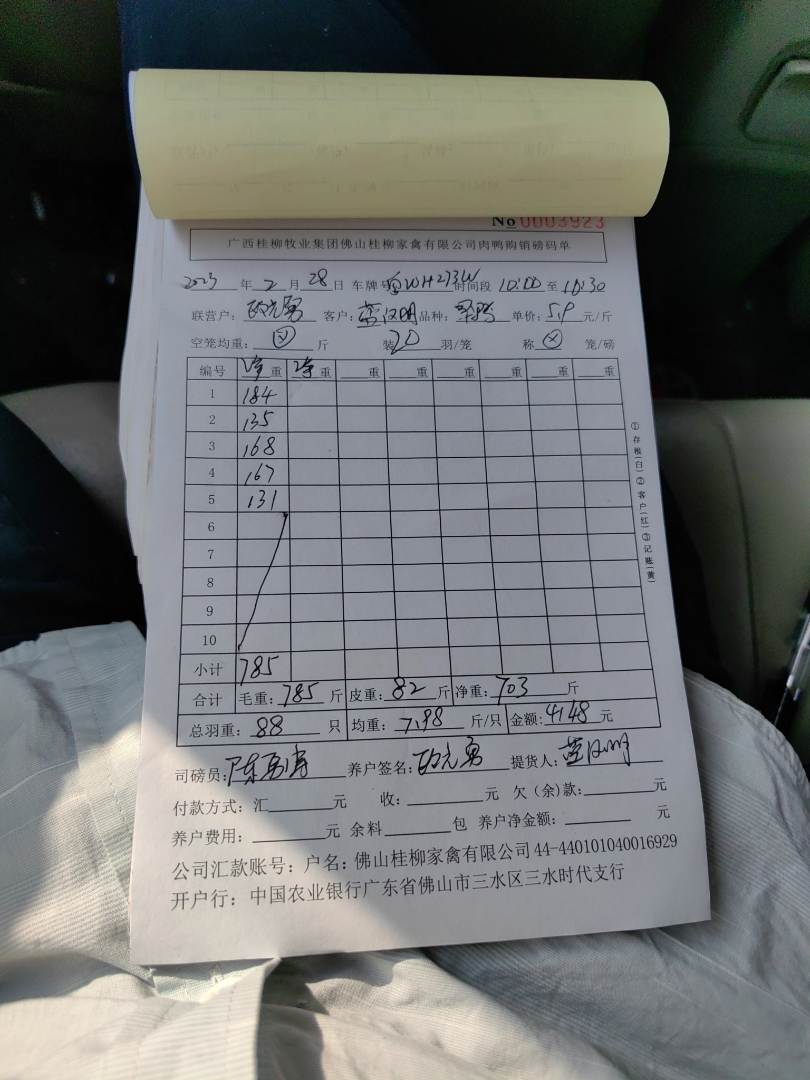 No 0003923
广西桂柳牧业集团佛山桂柳家禽有限公司肉鸭购销磅码单
2023 年 2 月 28 日 车牌号 WH273W 时间段 10:00 至 10:30
联营户: 客户: 蓝汉明 品种: 单价: 5.9 元/斤
空笼均重: 斤 装 20 羽/笼 称 笼/磅
编号 净重 净重 重 重 重 重 重 重
1 184
2 135
3 168
4 167
5 131
6
7
8
9
10
小计 785
合计 毛重: 785 斤 皮重: 82 斤 净重: 703 斤
总羽重: 88 只 均重: 7.98 斤/只 金额: 4148 元
司磅员: 陈勇 养户签名: 提货人: 蓝汉明
付款方式: 汇 元 收: 元 欠(余)款: 元
养户费用: 元 余料 包 养户净金额: 元
公司汇款账号: 户名: 佛山桂柳家禽有限公司 44-440101040016929
开户行: 中国农业银行广东省佛山市三水区三水时代支行
①存根(白)②客户(红)③记账(黄)